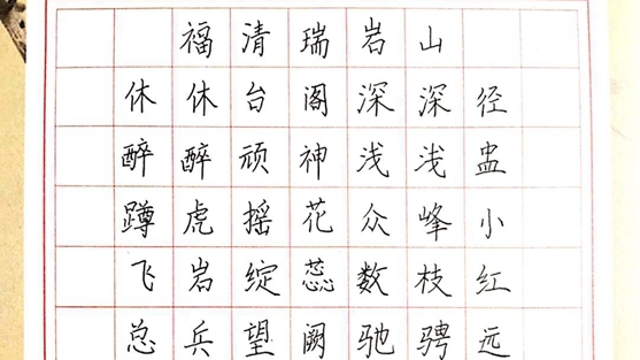 福清瑞岩山
休休台阁深深径
醉醉顽神浅浅盅
蹲虎摇花众峰小
飞岩绽蕊数枝红
总兵望阙驰骋远